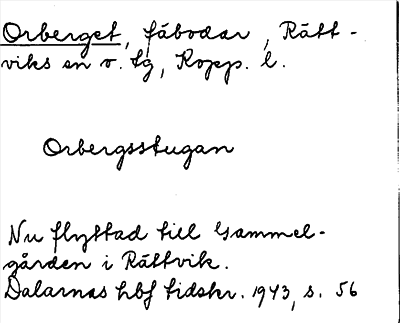 Orberget, fäbodar, Rätt-
viks sn o. tg, Kopp. l.
Orbergsstugan
Nu flyttad till Gammel-
gården i Rättvik.
Dalarnas hbf tidskr. 1943, s. 56